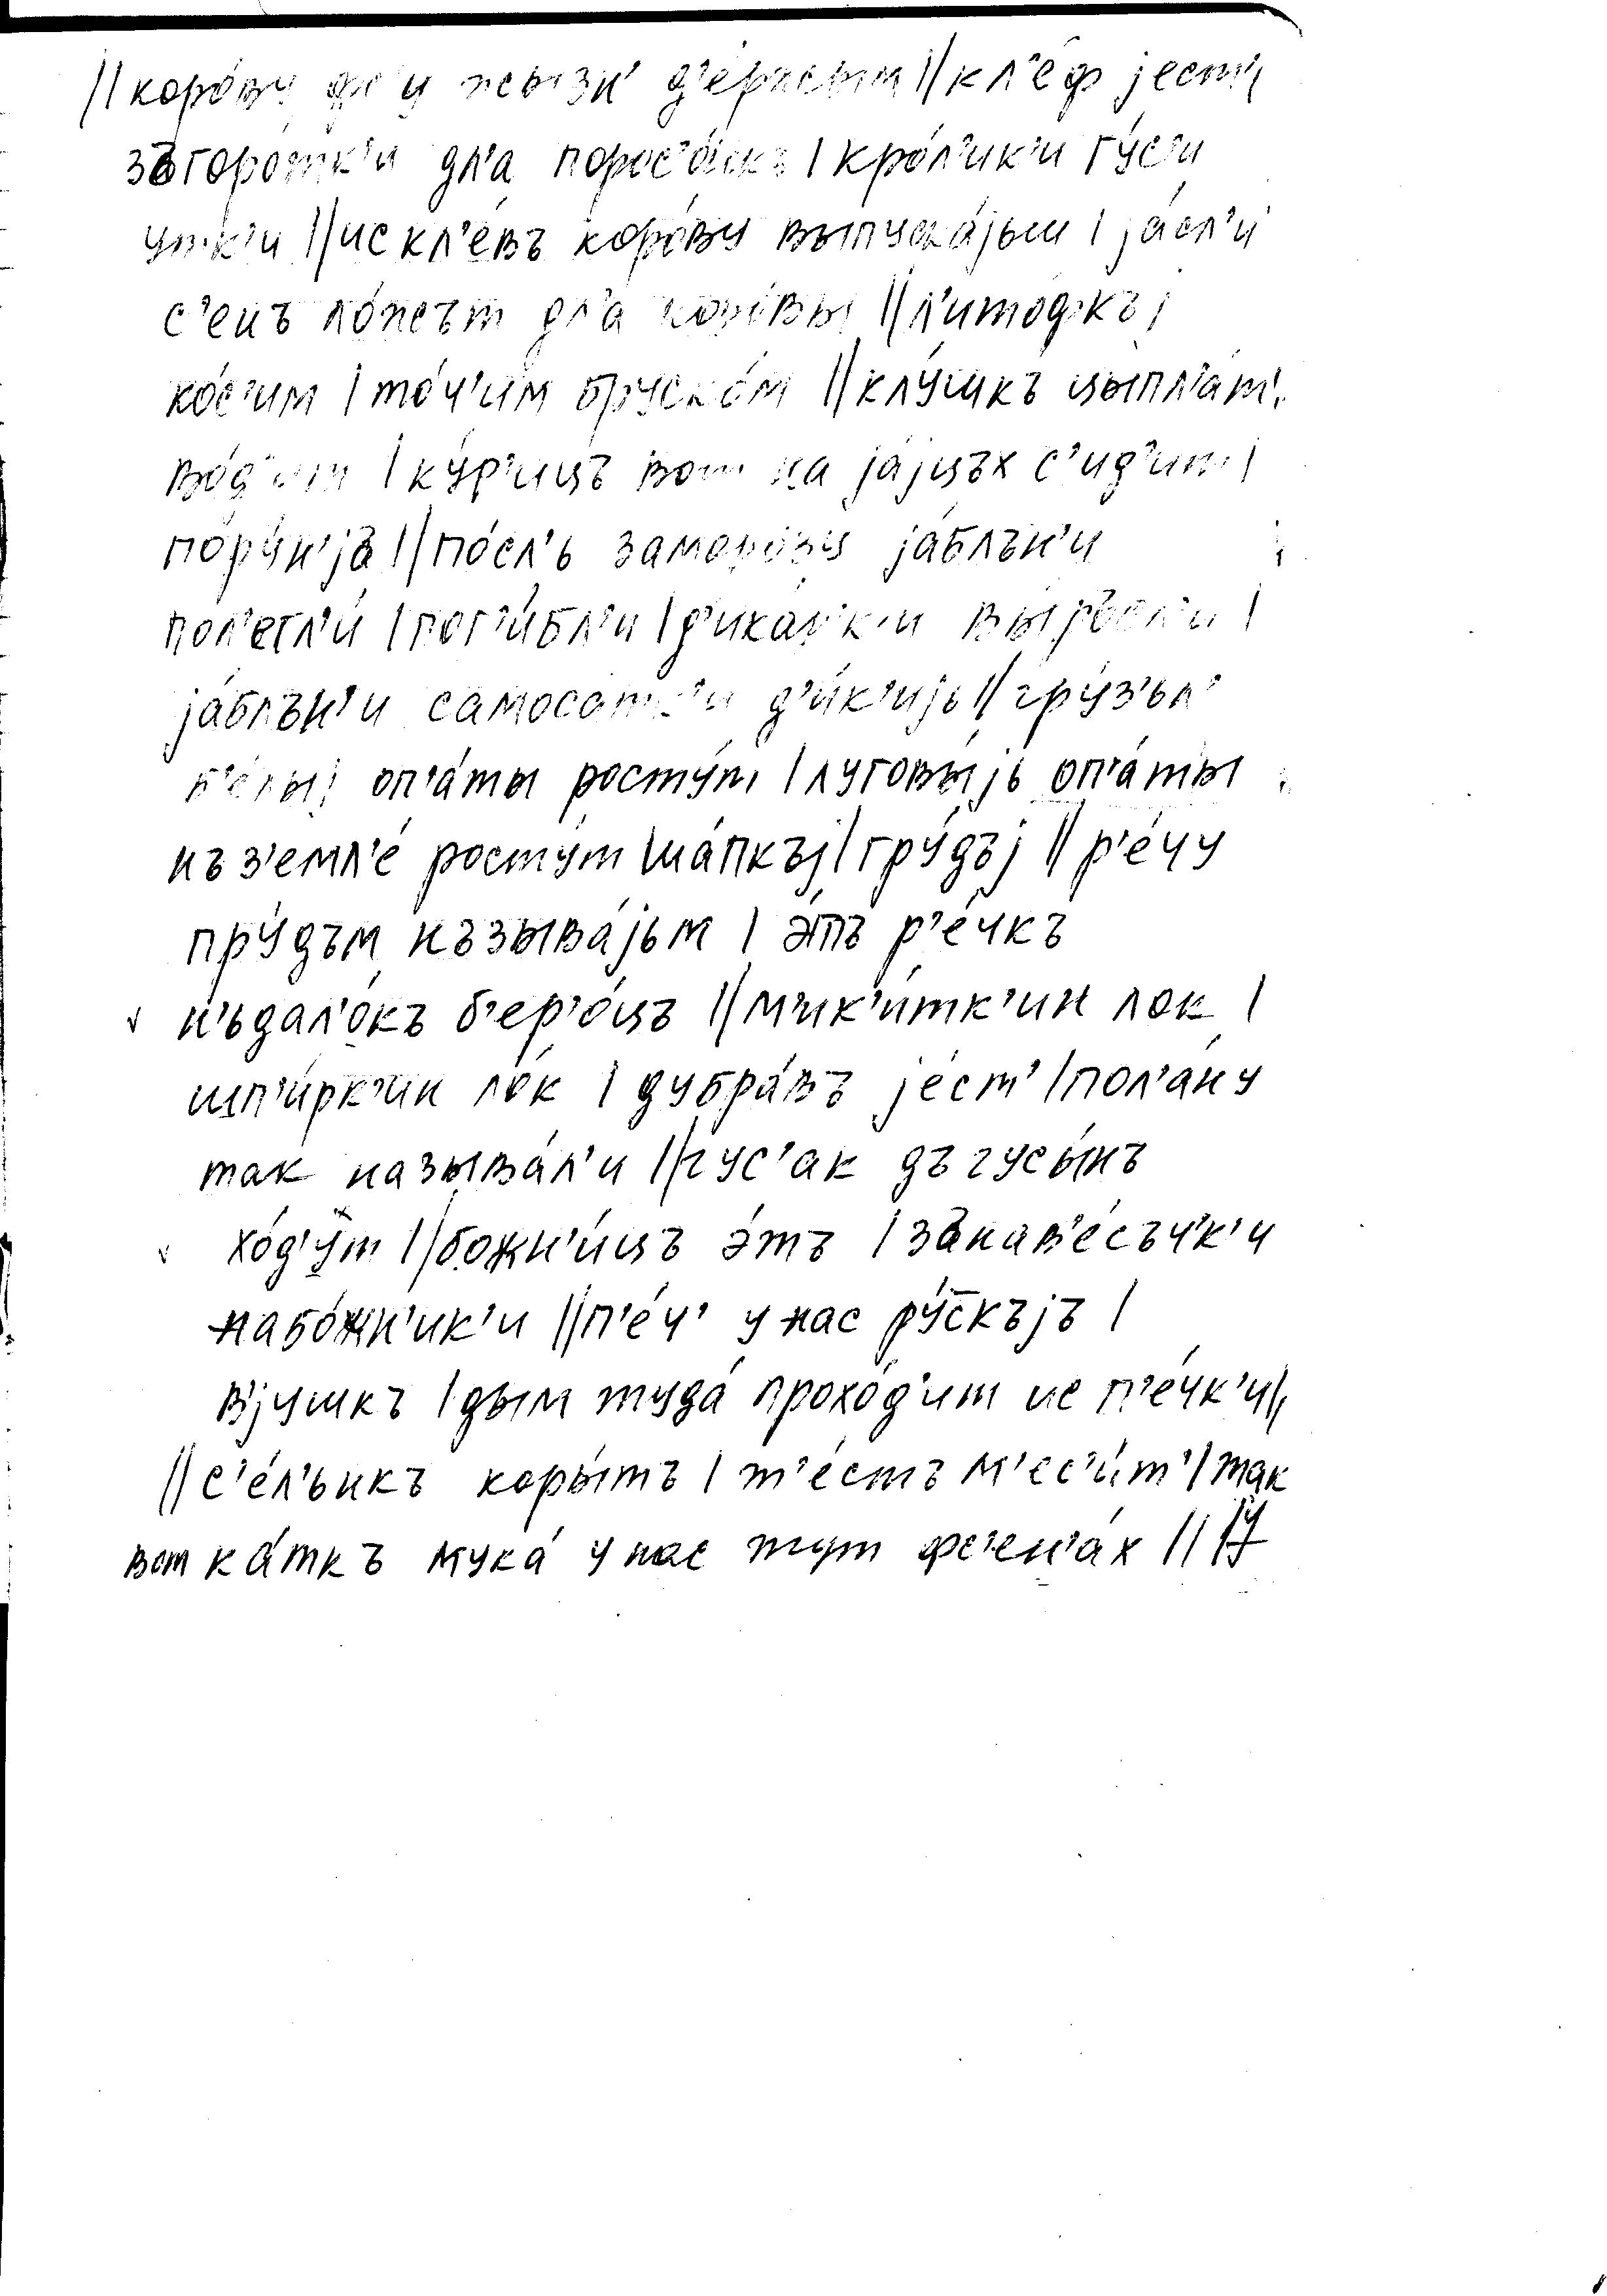 //коро́ву д'е́ржым//кл'е́ф јест'/
зъгоро́тк'и дл'а порос'о́нкъ/кро́л'ик'и гу́с'и
у́тк'и//ис кл'е́въ коро́ву выпуска́јьм/ја́сл'и
с'е́нъ ло́жът дл'а коро́вы//л'ито́фкъ/
ко́с'им/то́ч'им бруско́м//клу́шкъ цыпл'а́т
во́д'ит/ку́р'ицъ вот на ја́јцъх с'ид'ит/
пору́н'јъ//по́сл'ь заморо́зу ја́блън'и
пол'егл'и́/пог'и́бл'и/д'ика́рк'и вы́ръсл'и/
ја́блън'и самоса́тк'и д'и́к'ијь//гру́з'ьл'
б'е́лыј оп'а́ты росту́т/лугов́ыјь оп'а́ты
нъ з'емл'е́ росту́т/ша́пкъј/гру́дъј//р'е́чу
пру́дъм нъзыва́јьм/э́тъ р'е́чкъ
н'ьдал'о́къ б'ер'о́цъ//м'ик'и́тк'ин лок/
шп'и́рк'ин ло́к/дубра́въ је́ст'/пол'а́ну
так называ́л'и//гус'ак дъ гусы́нъ
хо́д'ут//божн'и́цъ э́тъ/занав'е́съч'к'и
набо́жн'ик'и//п'е́ч' у нас ру́скъјъ/
в'ју́шкъ/дым туда́ прохо́д'ит ис п'е́чк'и//
//с'е́л'ьнкъ коры́тъ/т'е́стъ м'ес'и́т'/так
вот ка́ткъ мука́ у нас тут фс'ен'а́х//